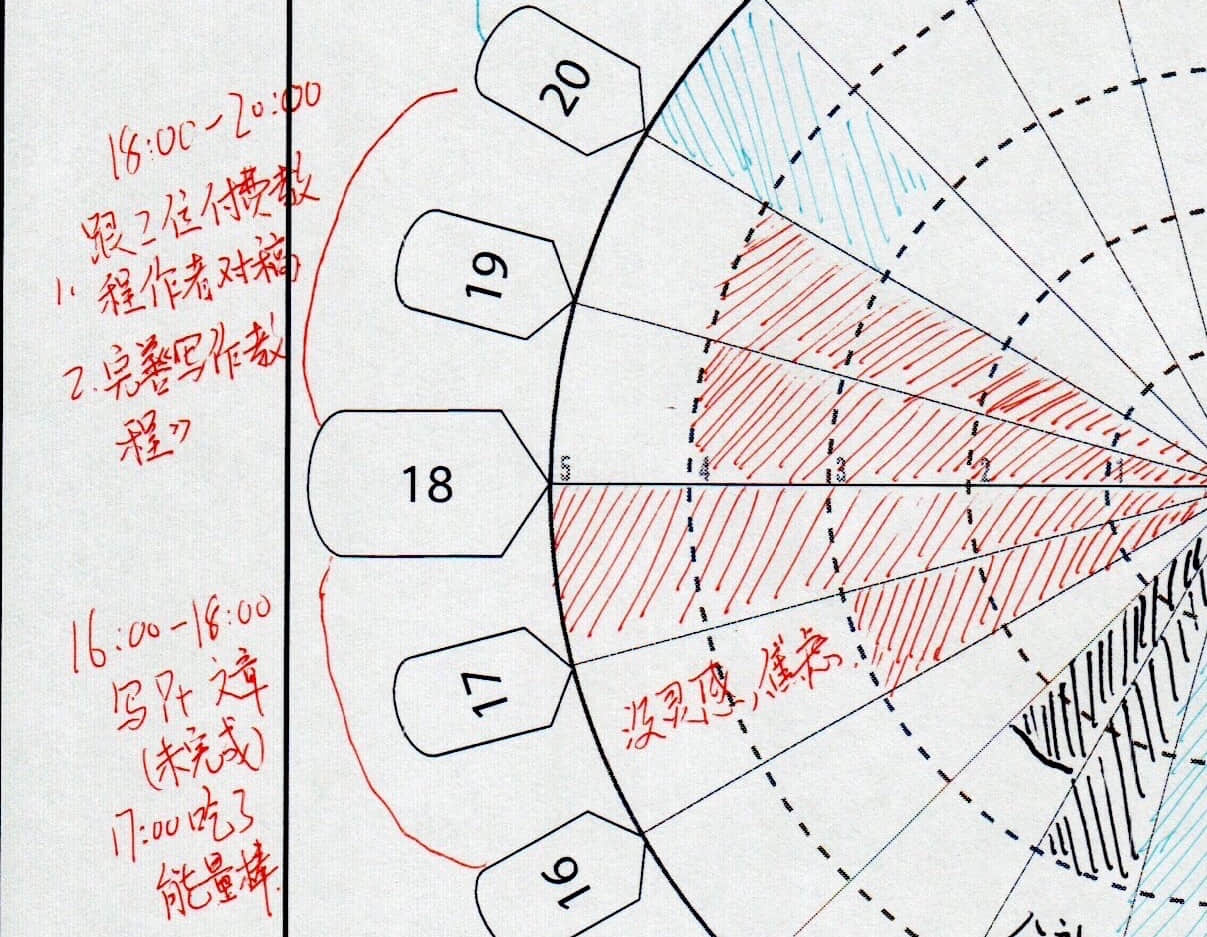 18:00-20:00
跟2位付费教
1. 程作者对稿
2. 完善写作教
程》
16:00-18:00
写 文章
(未完成)
17:00吃了
能量棒.
20
19
18
17
16
5 4 3 2 1
没灵感,焦虑.